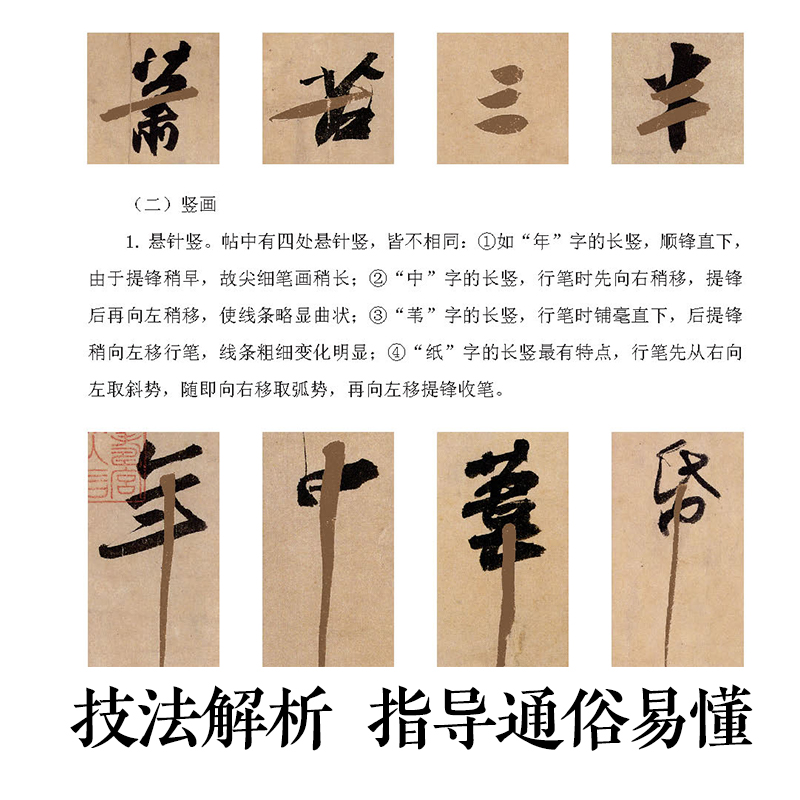 萧 苦 三 半
（二）竖画
1. 悬针竖。帖中有四处悬针竖，皆不相同：①如“年”字的长竖，顺锋直下，
由于提锋稍早，故尖细笔画稍长；②“中”字的长竖，行笔时先向右稍移，提锋
后再向左稍移，使线条略显曲状；③“苇”字的长竖，行笔时铺毫直下，后提锋
稍向左移行笔，线条粗细变化明显；④“纸”字的长竖最有特点，行笔先从右向
左取斜势，随即向右移取弧势，再向左移提锋收笔。
年 中 葦 帋
技法解析 指导通俗易懂